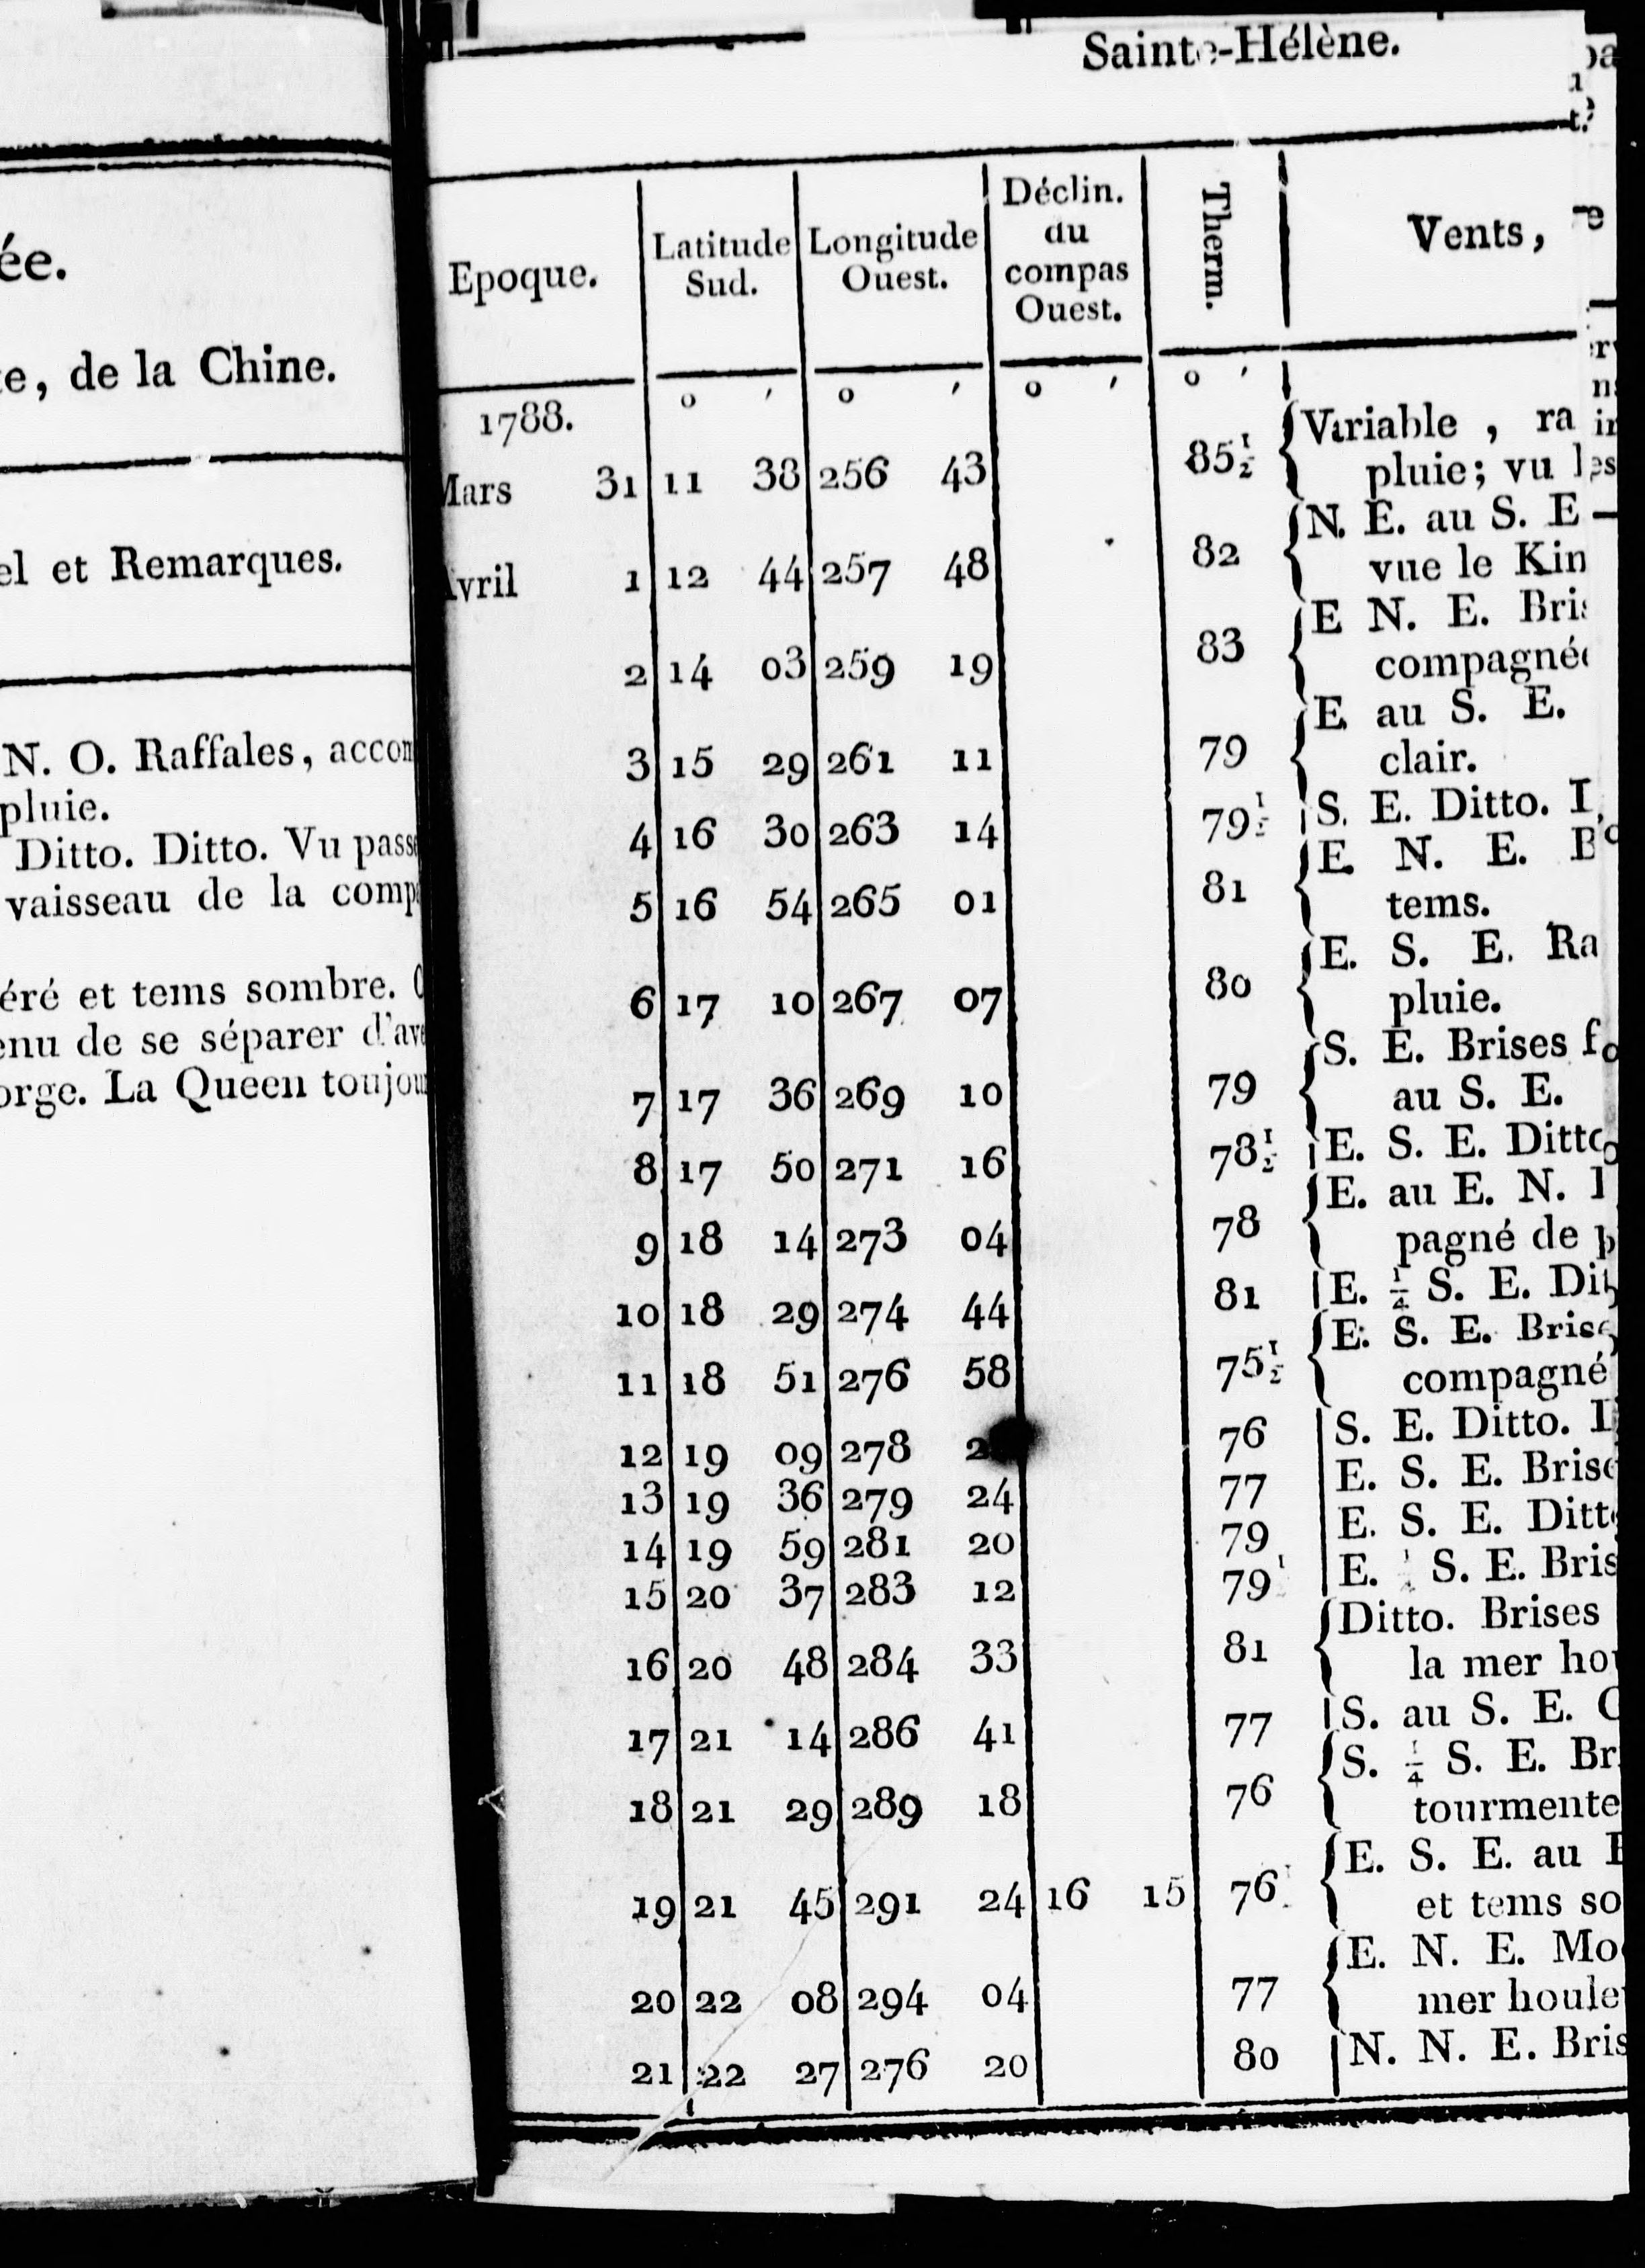 ée.
te, de la Chine.
el et Remarques.
N. O. Raffales, accom
pluie.
Ditto. Ditto. Vu passe
vaisseau de la comp
éré et tems sombre.
enu de se séparer d'ave
orge. La Queen toujou
Sainte-Hélène.
Epoque.
Latitude Sud.
Longitude Ouest.
Déclin. du compas Ouest.
Therm.
Vents,
1788. o ' o ' o ' o '
Mars 31 11 38 256 43 85 1/2 Variable , ra
pluie; vu les
Avril 1 12 44 257 48 82 N. E. au S. E
vue le Kin
2 14 03 259 19 83 E N. E. Bris
compagnée
3 15 29 261 11 79 E au S. E.
clair.
4 16 30 263 14 79 1/2 S. E. Ditto.
5 16 54 265 01 81 E. N. E. B
tems.
6 17 10 267 07 80 E. S. E. Ra
pluie.
7 17 36 269 10 79 S. E. Brises fo
au S. E.
8 17 50 271 16 78 1/2 E. S. E. Ditto
9 18 14 273 04 78 E. au E. N.
pagné de p
10 18 29 274 44 81 E. 1/4 S. E. Dit
11 18 51 276 58 75 1/2 E. S. E. Brise
compagné
12 19 09 278 2 76 S. E. Ditto.
13 19 36 279 24 77 E. S. E. Brise
14 19 59 281 20 79 E. S. E. Ditto
15 20 37 283 12 79 E. S. E. Bris
16 20 48 284 33 81 Ditto. Brises
la mer hou
17 21 14 286 41 77 S. au S. E.
18 21 29 289 18 76 S. 1/4 S. E. Br
tourmente
19 21 45 291 24 16 15 76 E. S. E. au E
et tems so
20 22 08 294 04 77 E. N. E. Mo
mer houle
21 22 27 276 20 80 N. N. E. Bris